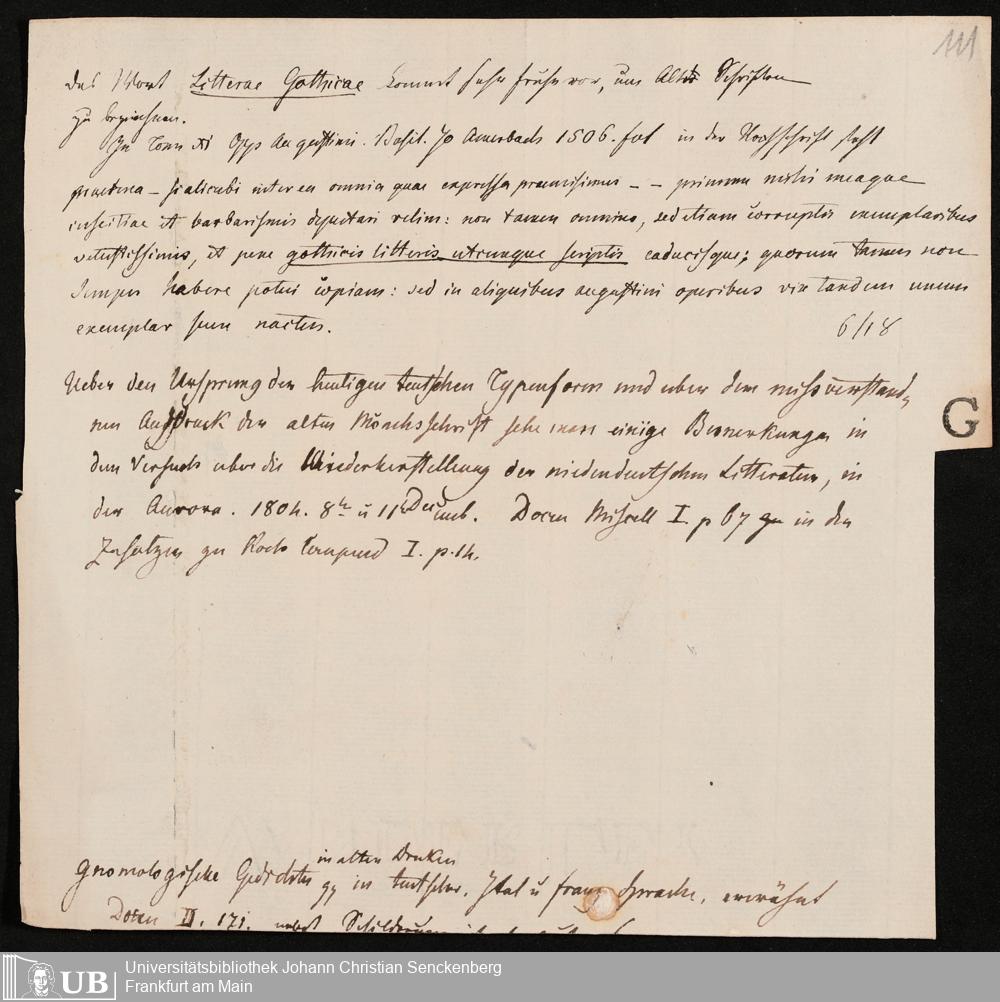 111
Das Wort Litterae Gothicae kommt sehr früh vor, um Alte Schriften
zu bezeichnen.
In Tom XI Opp Augustini. Basil. Jo Amerbach 1506. fol in der Nachschrift steht
praeterea – si alicubi inter ea omnia quae expressa praemisimus – – primum mihi meaque
insciciae et barbarismis deputari velim: non tamen omnino, sed etiam corruptis exemplaribus
vetustissimis, et pene gotthicis litteris utcumque scriptis caducisque; quorum tamen non
semper habere potui copiam: sed in aliquibus augustini operibus vix tandem unum
exemplar sum nactus. 6/18
Ueber den Ursprung der heutigen teutschen Typenform und über den missverstand
nen Ausdruck der alten Mönchsschrift sehe man einige Bemerkungen in
dem Versuch über die Wiederherstellung der niederdeutschen Litteratur, in
der Aurora. 1804. 8 u 11 Decemb. Docen Miscell I. p 67 in den
Zusätzen zu Kochs Compend I. p. 14.
G
in alten Drucken
Gnomologische Gedichte in teutscher, Ital u franz Sprache, erwähnt
Docen II. 171. nebst
UB
Universitätsbibliothek Johann Christian Senckenberg
Frankfurt am Main